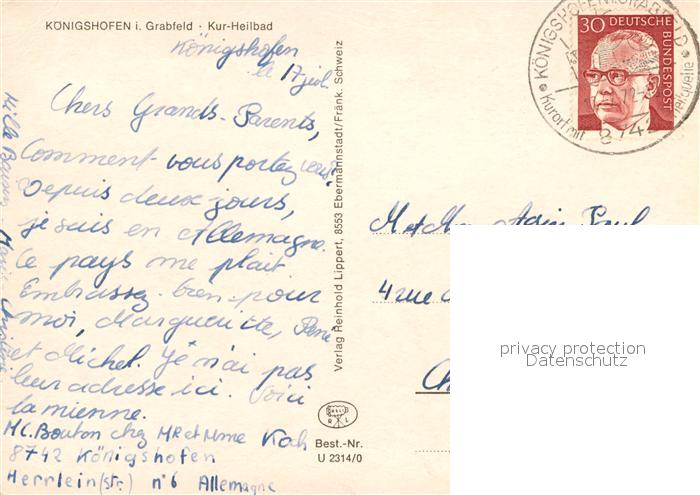 KÖNIGSHOFEN i. Grabfeld · Kur-Heilbad
Königshofen
le 17 juil.
Chers Grands-Parents,
Comment vous portez vous?
Depuis deux jours,
je suis en Allemagne.
Ce pays me plait.
Embrassez bien pour
moi, Marguerite, René
et Michel. Je n'ai pas
leur adresse ici. Voici
la mienne.
MC. Bouton chez MR et Mme Koch
8742 Königshofen
Herrlein(str.) n°6 Allemagne
Mille Baisers
Marie Christine
Verlag Reinhold Lippert, 8553 Ebermannstadt/Fränk. Schweiz
R L
Best.-Nr.
U 2314/0
KÖNIGSHOFEN i. GRABFELD
Kurort mit
8742
30 DEUTSCHE
BUNDESPOST
M et Mme Paul
4 rue
privacy protection
Datenschutz